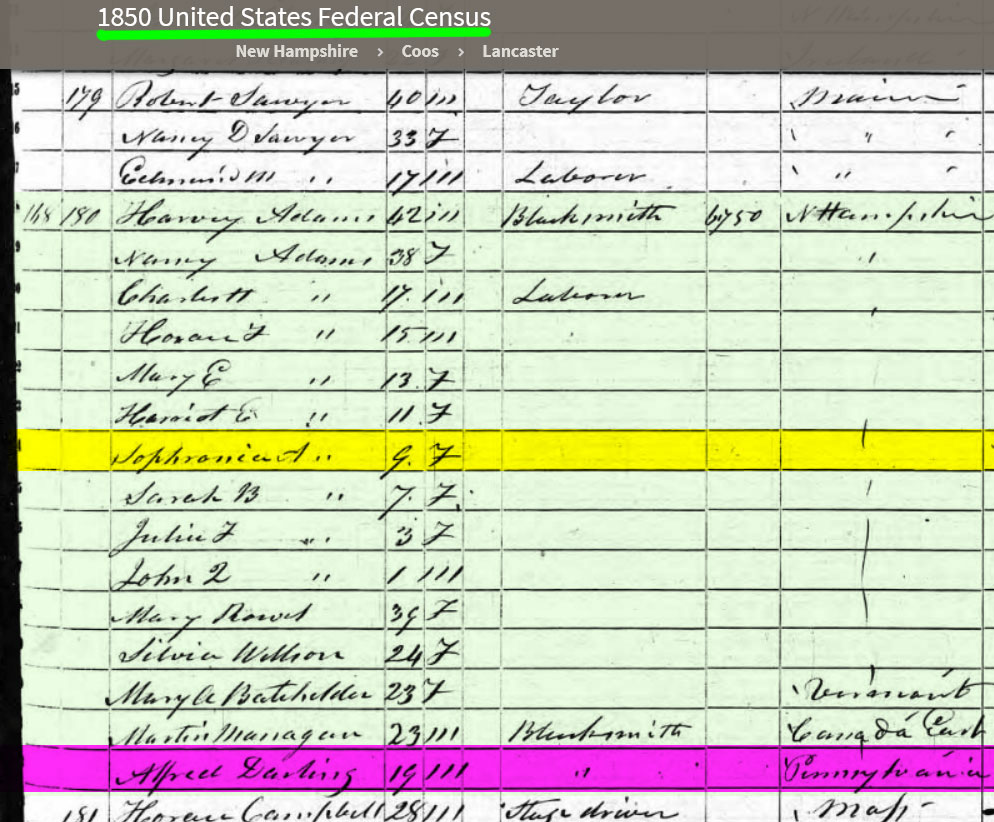 1850 United States Federal Census
New Hampshire > Coos > Lancaster
179 Robert Sawyer 40 m Taylor Maine
Nancy D Sawyer 33 F " "
Edmund M " 17 m Laborer " "
168 180 Harvey Adams 42 m Blacksmith N Hampshire
Nancy Adams 38 F "
" 17 m Laborer
" 15 m
Mary E " 13 F
Harriet E " 11 F
Sophronia A " 9 F
Sarah B " 7 F
Julia F " 3 F
John Q " 1 m
Mary 39 F
Silvia Willson 24 F
Mary A Batchelder 23 F Vermont
Martin Managan 23 m Blacksmith Canada East
Alfred Darling 19 m " Pennsylvania
181 Horace Campbell 28 m Stage driver Mass